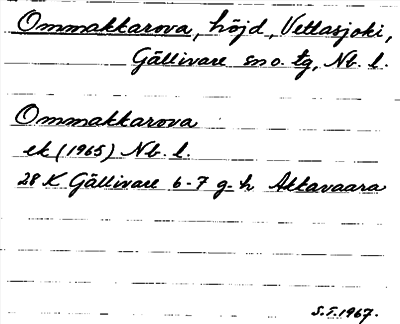 Ommakkarova, höjd, Vettasjoki,
Gällivare sn o. tg, Nb. l.
Ommakkarova
ek (1965) Nb. l.
28 K Gällivare 6-7 g-h Akkavaara
S.F. 1967.